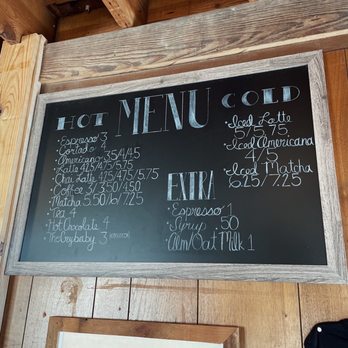 HOT MENU COLD
Espresso 3
Cortado 4
Americano 3.5/4/4.5
Latte 4.25/4.75/5.75
Chai Latte 4.25/4.75/5.75
Coffee 3/3.50/4.50
Matcha 5.50/6/7.25
Tea 4
Hot Chocolate 4
The Crybaby 3
Iced Latte
5/5.75
Iced Americano
4/5
Iced Matcha
6.25/7.25
EXTRA
Espresso 1
Syrup .50
Alm/Oat Milk 1